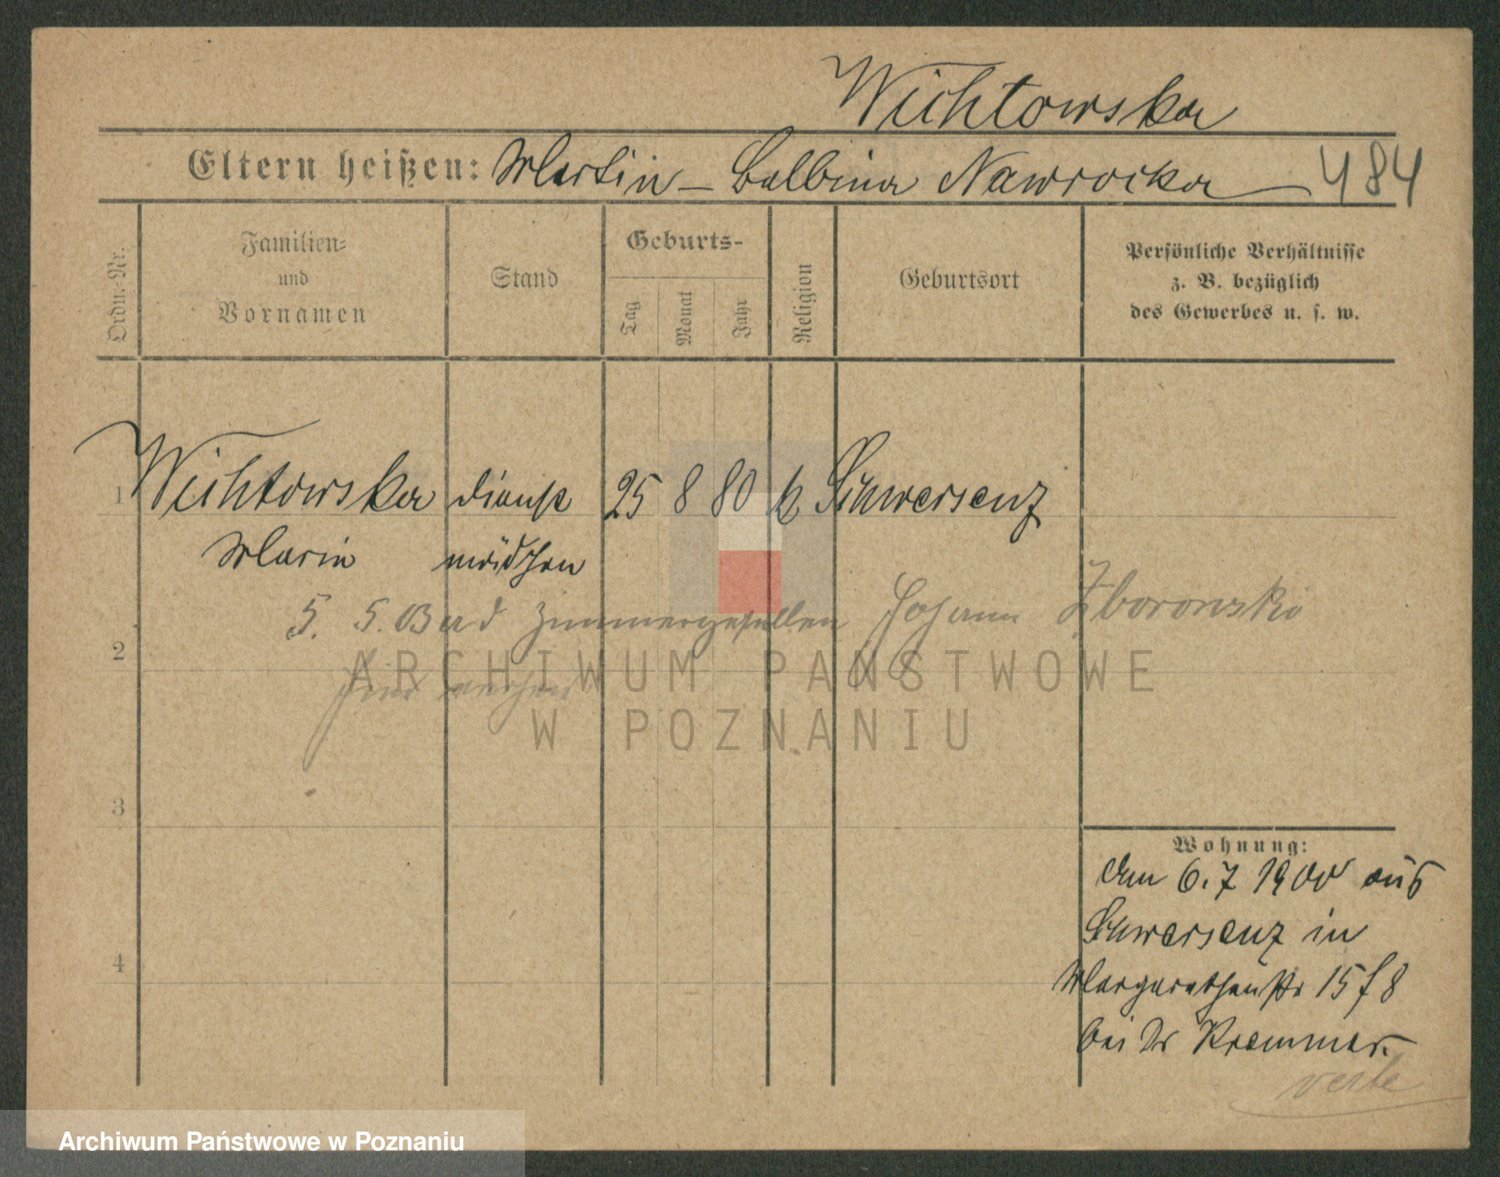 Wichtowska
Eltern heißen: Martin – Balbina Nawrocka – 484
Ordn.-Nr.
Familien- und Vornamen
Stand
Geburts-
Tag
Monat
Jahr
Religion
Geburtsort
Persönliche Verhältnisse
z. B. bezüglich
des Gewerbes u. s. w.
1 Wichtowska dienst 25 8 80 k Schwersenz
Marie mädchen
5. 5. 03 Zimmergesellen Johann Zborowski
2
ARCHIWUM PAŃSTWOWE
W POZNANIU
3
Wohnung:
Am 6.7 1900 aus
Schwersenz in
4
Margarethenstr 15 f 8
bei Dr Krammer.
verte
Archiwum Państwowe w Poznaniu